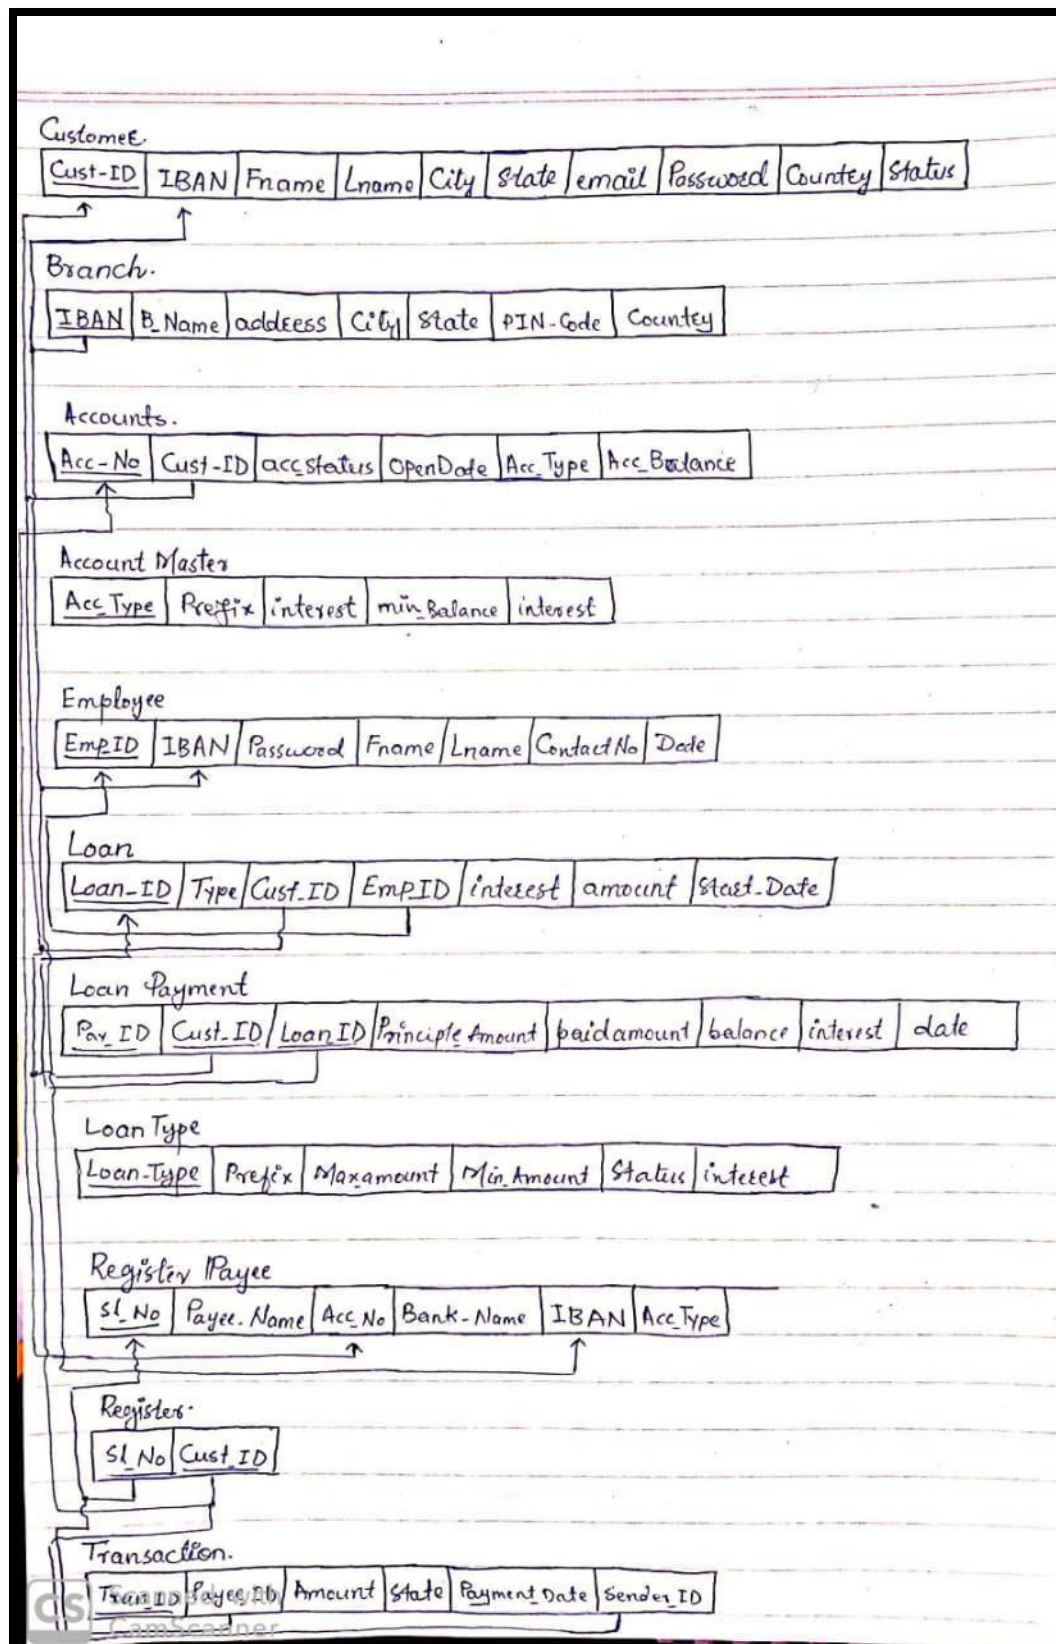 Customer.
Cust-ID IBAN Fname Lname City State email Password Country Status
Branch.
IBAN B_Name address City State PIN-Code Country
Accounts.
Acc-No Cust-ID acc_status OpenDate Acc_Type Acc_Balance
Account Master
Acc_Type Prefix interest min_Balance interest
Employee
Emp_ID IBAN Password Fname Lname Contact No
Loan
Loan-ID Type Cust_ID Emp_ID interest amount Start_Date
Loan Payment
Pay_ID Cust_ID Loan_ID Principle_Amount paidamount balance interest date
Loan Type
Loan-Type Prefix Maxamount Min_Amount Status interest
Register Payee
Sl_No Payee_Name Acc_No Bank-Name IBAN Acc_Type
Register.
Sl_No Cust_ID
Transaction.
Tran_ID Amount State Payment_Date Sender_ID
CS Scanned with
CamScanner